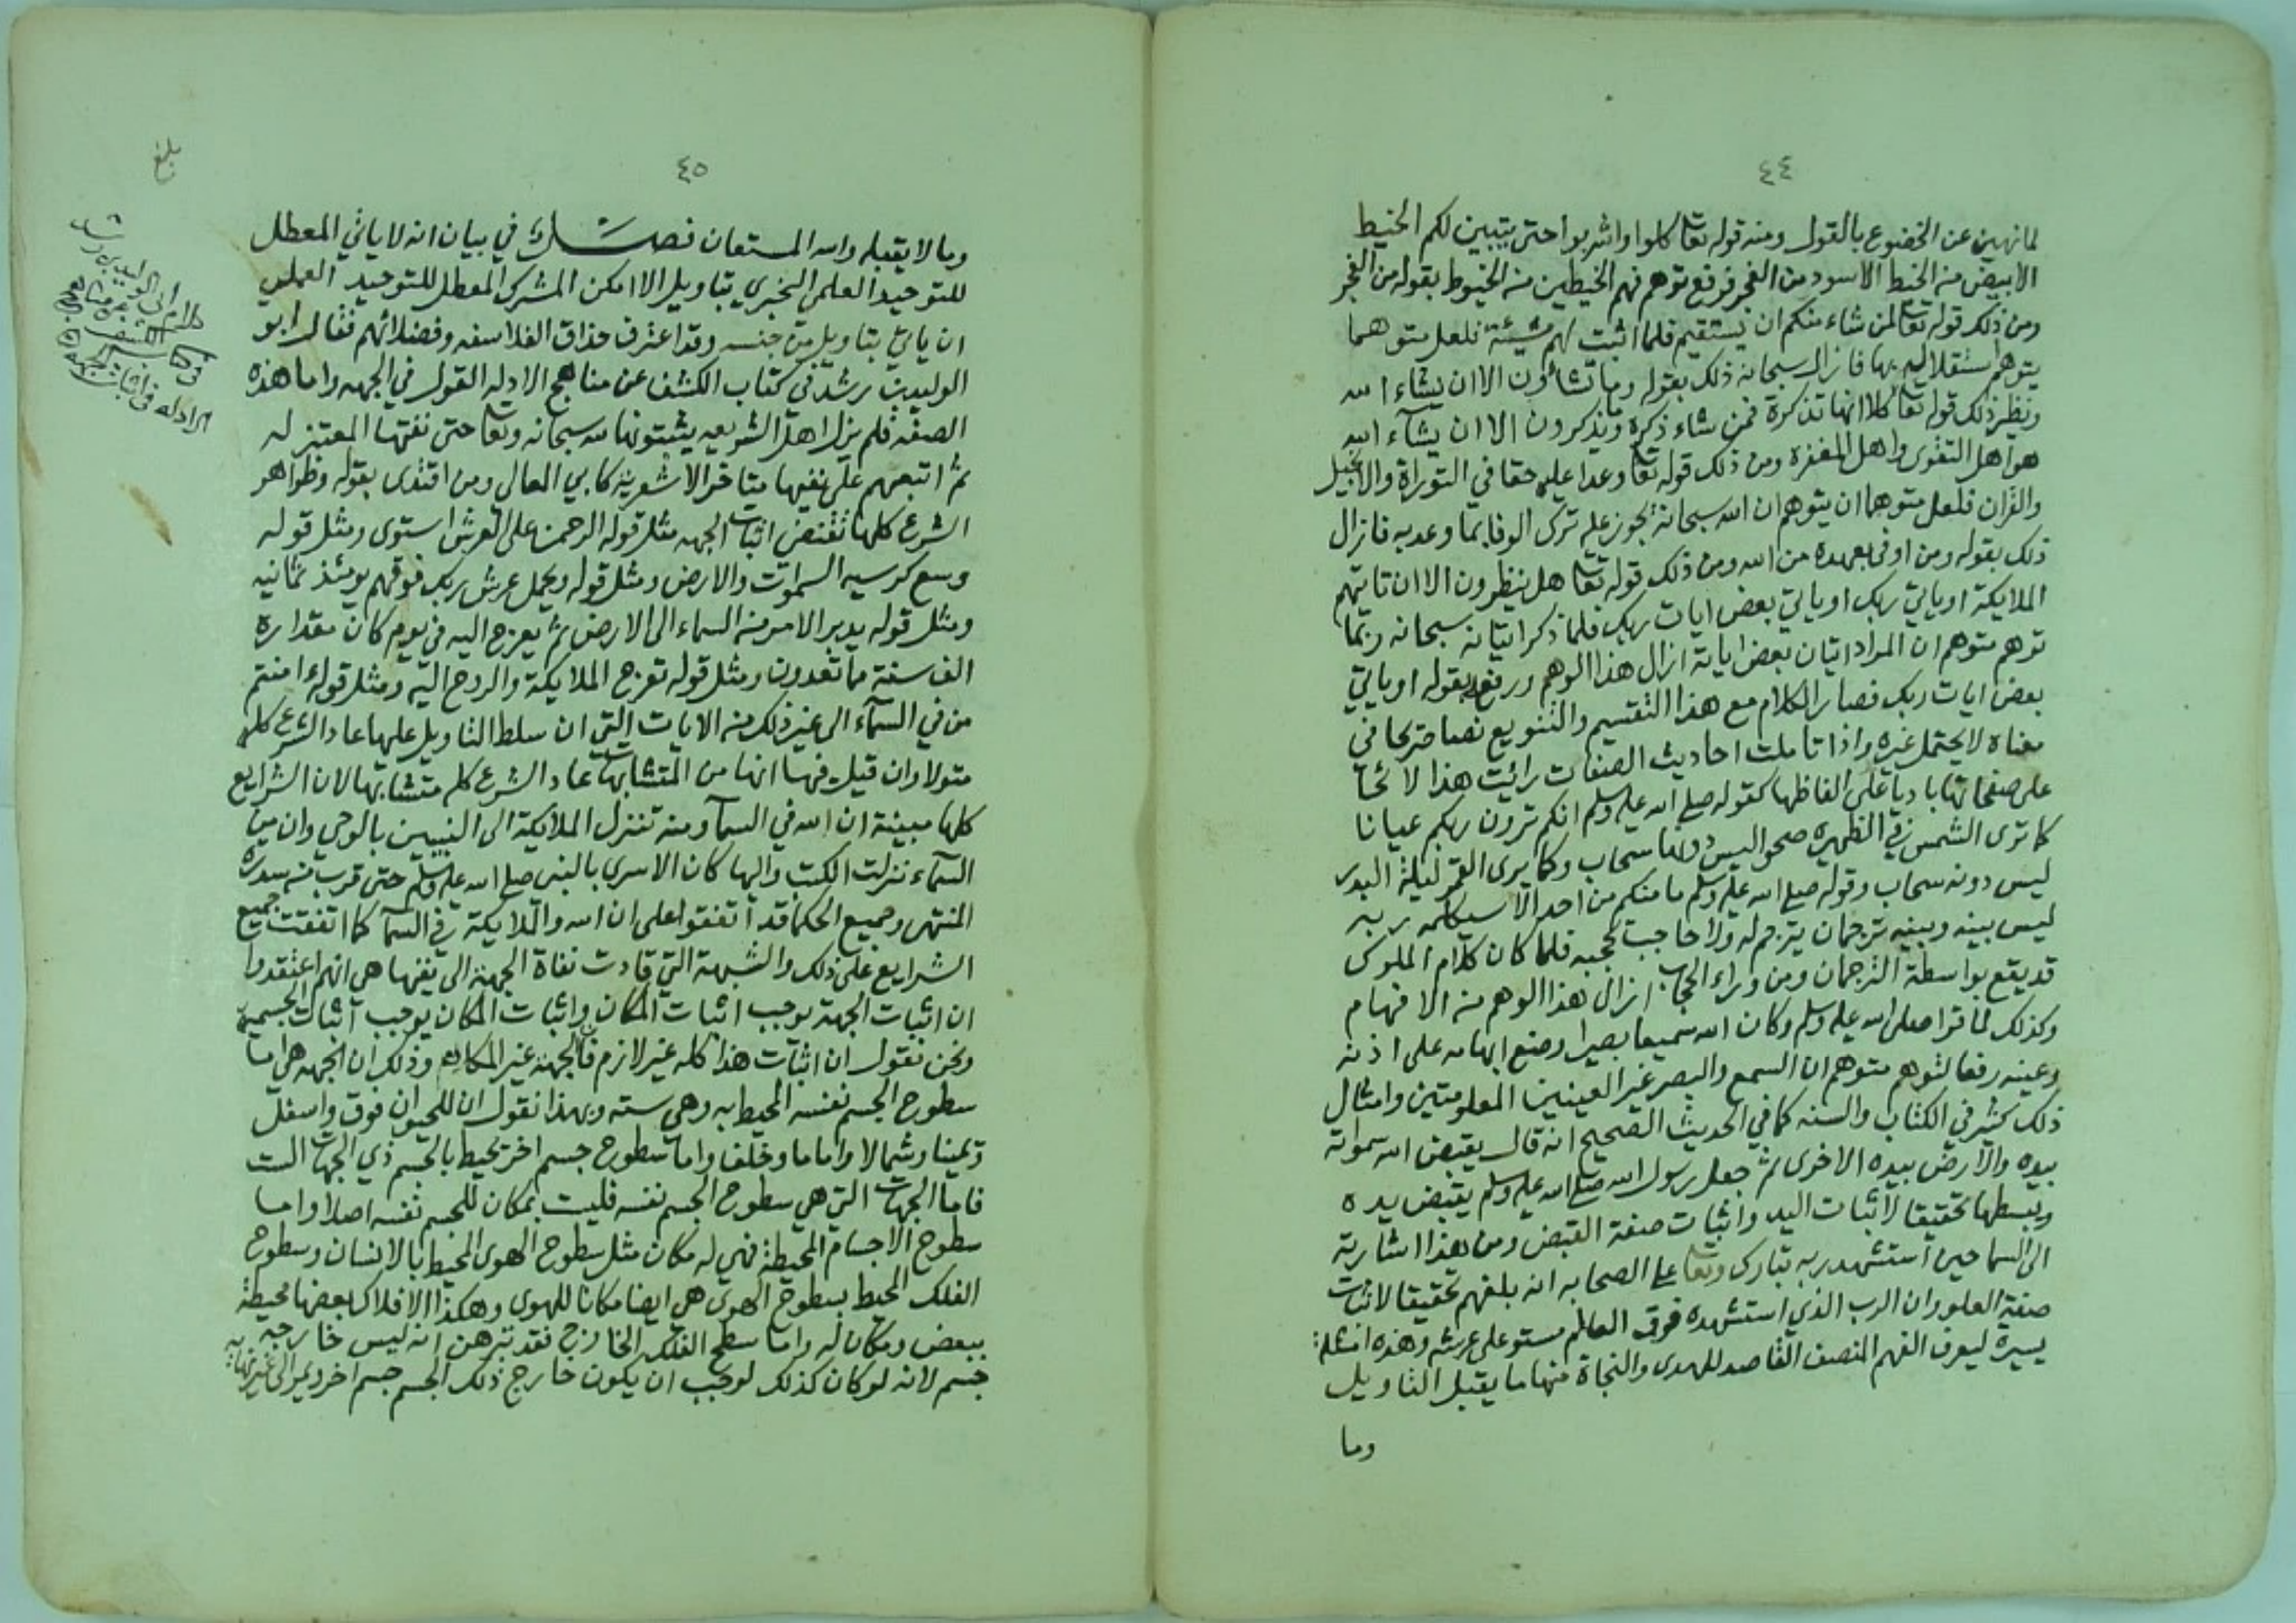 ٤٤
لما نهين عن الخضوع بالقول ومنه قوله تعا كلوا واشربوا حتى يتبين لكم الخيط
الابيض من الخيط الاسود من الفجر فرفع توهم فهم الخيطين من الخيوط بقوله من الفجر
ومن ذلك قوله تعا لمن شاء منكم ان يستقيم فلما اثبت لهم مشيئة فلعل متوهما
يتوهم استقلاله بها فازال سبحانه ذلك بقوله وما تشاؤن الا ان يشاء الله
ونظير ذلك قوله تعا كلا انها تذكرة فمن شاء ذكره وما يذكرون الا ان يشآء الله
هو اهل التقوى واهل المغفرة ومن ذلك قوله تعا وعدا عليه حقا في التوراة والانجيل
والقران فلعل متوهما ان يتوهم ان الله سبحانه يجوز عليه ترك الوفا بما وعد به فازال
ذلك بقوله ومن اوفى بعهده من الله ومن ذلك قوله تعا هل ينظرون الا ان تاتيهم
الملايكة او ياتي ربك او ياتي بعض ايات ربك فلما ذكر اتيانه سبحانه ربما
توهم متوهم ان المراد اتيان بعض اياته ازال هذا الوهم ورفعه بقوله او ياتي
بعض ايات ربك فصار الكلام مع هذا التقسيم والتنويع نصا صريحا في
معناه لا يحتمل غيره واذا تاملت احاديث الصفات رائيت هذا لائحا
على صفحاتها باديا على الفاظها كقوله صلى الله عليه وسلم انكم ترون ربكم عيانا
كما ترى الشمس في الظهيره صحوا ليس دونها سحاب وكما يرى القمر ليلة البدر
ليس دونه سحاب وقوله صلى الله عليه وسلم ما منكم من احد الا سيكلمه ربه
ليس بينه وبينه ترجمان يترجم له ولا حاجب يحجبه فلما كان كلام الملوك
قد يقع بواسطة الترجمان ومن وراء الحجاب ازال هذا الوهم من الافهام
وكذلك لما قرا صلى الله عليه وسلم وكان الله سميعا بصيرا وضع ابهامه على اذنه
وعينه رفعا لتوهم متوهم ان السمع والبصر غير العينين المعلومتين وامثال
ذلك كثير في الكتاب والسنه كما في الحديث الصحيح انه قال يقبض الله سمواته
بيده والارض بيده الاخرى ثم جعل رسول الله صلى الله عليه وسلم يقبض يده
ويبسطها تحقيقا لاثبات اليد واثبات صفة القبض ومن هذا اشارته
الى السما حين استشهد ربه تبارك وتعا على الصحابه انه بلغهم تحقيقا لاثبات
صفة العلو وان الرب الذي استشهده فوق العالم مستو على عرشه وهذه امثلة
يسيرة ليعرف الفهم المنصف القاصد للهدى والنجاة منها ما يقبل التاويل
وما
٤٥
وما لا يقبله والله المستعان فصــــل في بيان انه لا ياتي المعطل
للتوحيد العلمي الخبري بتاويل الا امكن المشرك المعطل للتوحيد العملي
ان ياتي بتاويل من جنسه وقد اعترف حذاق الفلاسفه وفضلائهم فقال ابو
الوليد بن رشد في كتاب الكشف عن مناهج الادله القول في الجهه واما هذه
الصفه فلم يزل اهل الشريعه يثبتونها لله سبحانه وتعا حتى نفتها المعتزله
ثم اتبعهم على نفيها متاخر الاشعريه كابي المعالي ومن اقتدى بقوله وظواهر
الشرع كلها تقتضي اثبات الجهه مثل قوله الرحمن على العرش استوى ومثل قوله
وسع كرسيه السموات والارض ومثل قوله ويحمل عرش ربك فوقهم يومئذ ثمانيه
ومثل قوله يدبر الامر من السماء الى الارض ثم يعرج اليه في يوم كان مقداره
الف سنة مما تعدون ومثل قوله تعرج الملايكة والروح اليه ومثل قوله ءامنتم
من في السمآء الى غير ذلك من الايات التي ان سلط التاويل عليها عاد الشرع كله
متولا وان قيل فيها انها من المتشابهات عاد الشرع كله متشابها لان الشرايع
كلها مبينة ان الله في السمآ ومنه تنزل الملايكة الى النبيين بالوحي وان من
السمآء نزلت الكتب واليها كان الاسرى بالنبي صلى الله عليه وسلم حتى قرب من سدرة
المنتهى وجميع الحكما قد اتفقوا على ان الله والملايكة في السمآ كما اتفقت جميع
الشرايع على ذلك والشبهة التي قادت نفاة الجهة الى نفيها هي انهم اعتقدوا
ان اثبات الجهة يوجب اثبات المكان واثبات المكان يوجب اثبات الجسمية
ونحن نقول ان اثبات هذا كله غير لازم فالجهة غير المكان وذلك ان الجهه هي اما
سطوح الجسم نفسه المحيط به وهي سته وبهذا نقول ان للحيوان فوق واسفل
ويمينا وشمالا واماما وخلفا واما سطوح جسم اخر يحيط بالجسم ذي الجهات الست
فاما الجهات التي هي سطوح الجسم نفسه فليست بمكان للجسم نفسه اصلا واما
سطوح الاجسام المحيطة فهي له مكان مثل سطوح الهوى المحيط بالانسان وسطوح
الفلك المحيط بسطوح الهوى هي ايضا مكانا للهوى وهكذا الافلاك بعضها محيطة
ببعض ومكان له واما سطح الفلك الخارج فقد تبرهن انه ليس خارجه
جسم لانه لو كان كذلك لوجب ان يكون خارج ذلك الجسم جسم اخر ويمر الى غير نهايه
بلغ
كلام ابي الوليد بن رشد
في كتاب الكشف عن مناهج
الادله في اثبات الجهه